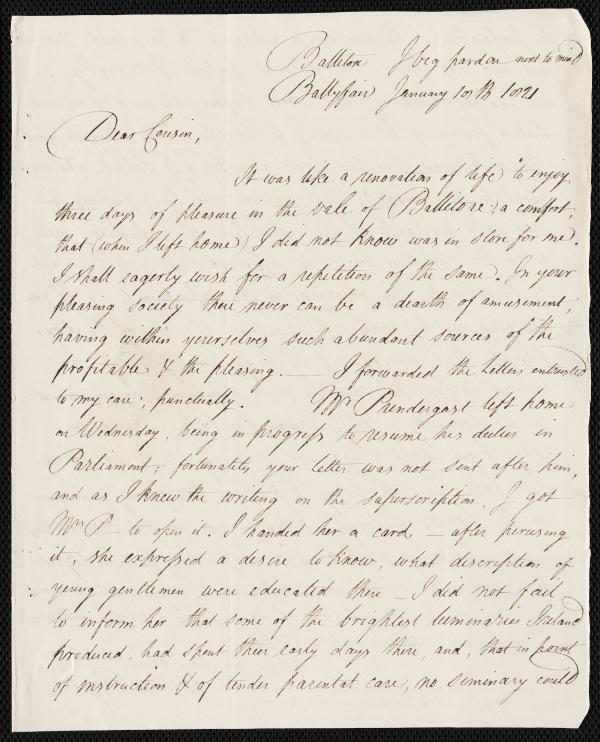 Ballitore I beg pardon next to mind
Ballyfair January 10th 1821
Dear Cousin,
It was like a renovation of life to enjoy
three days of pleasure in the vale of Ballitore; a comfort,
that (when I left home) I did not know was in store for me.
I shall eagerly wish for a repetition of the same. In your
pleasing society there never can be a dearth of amusement,
having within yourselves such abundant sources of the
profitable & the pleasing. — I forwarded the Letters entrusted
to my care, punctually. Mr Prendergast left home
on Wednesday, being in progress to resume his duties in
Parliament; fortunately your letter was not sent after him,
and as I knew the writing on the superscription, I got
Mrs P— to open it. I handed her a card — after perusing
it, she expressed a desire to know, what description of
young gentlemen were educated there — I did not fail
to inform her that some of the brightest luminaries Ireland
produced, had spent their early days there, and, that in point
of instruction & of tender parental care, no seminary could